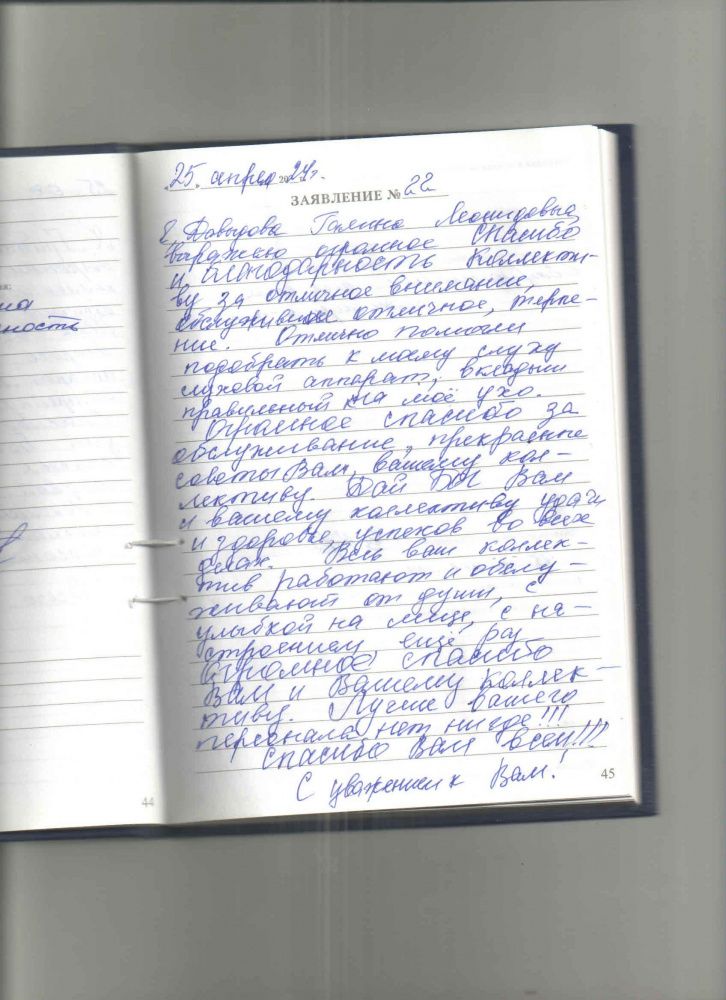 на
ность
44
„25„ апреля 2024г.
ЗАЯВЛЕНИЕ № 22
Я Давыдова Галина Леонидовна
выражаю огромное спасибо
и благодарность коллекти-
ву за отличное внимание,
обслуживание отличное, терпе-
ние. Отлично помогли
подобрать к моему слуху
слуховой аппарат, вкладыш
правильный на моё ухо.
Огромное спасибо за
обслуживание, прекрасные
советы Вам, вашему кол-
лективу. Дай Бог Вам
и вашему коллективу удачи
и здоровье, успехов во всех
делах. Весь ваш коллек-
тив работают и обслу-
живают от души, с
улыбкой на лице, с на-
строением, ещё раз
Огромное спасибо
Вам и Вашему коллек-
тиву. Лучше вашего
персонала нет нигде!!!
Спасибо Вам всем!!!!
С уважением к Вам!
45